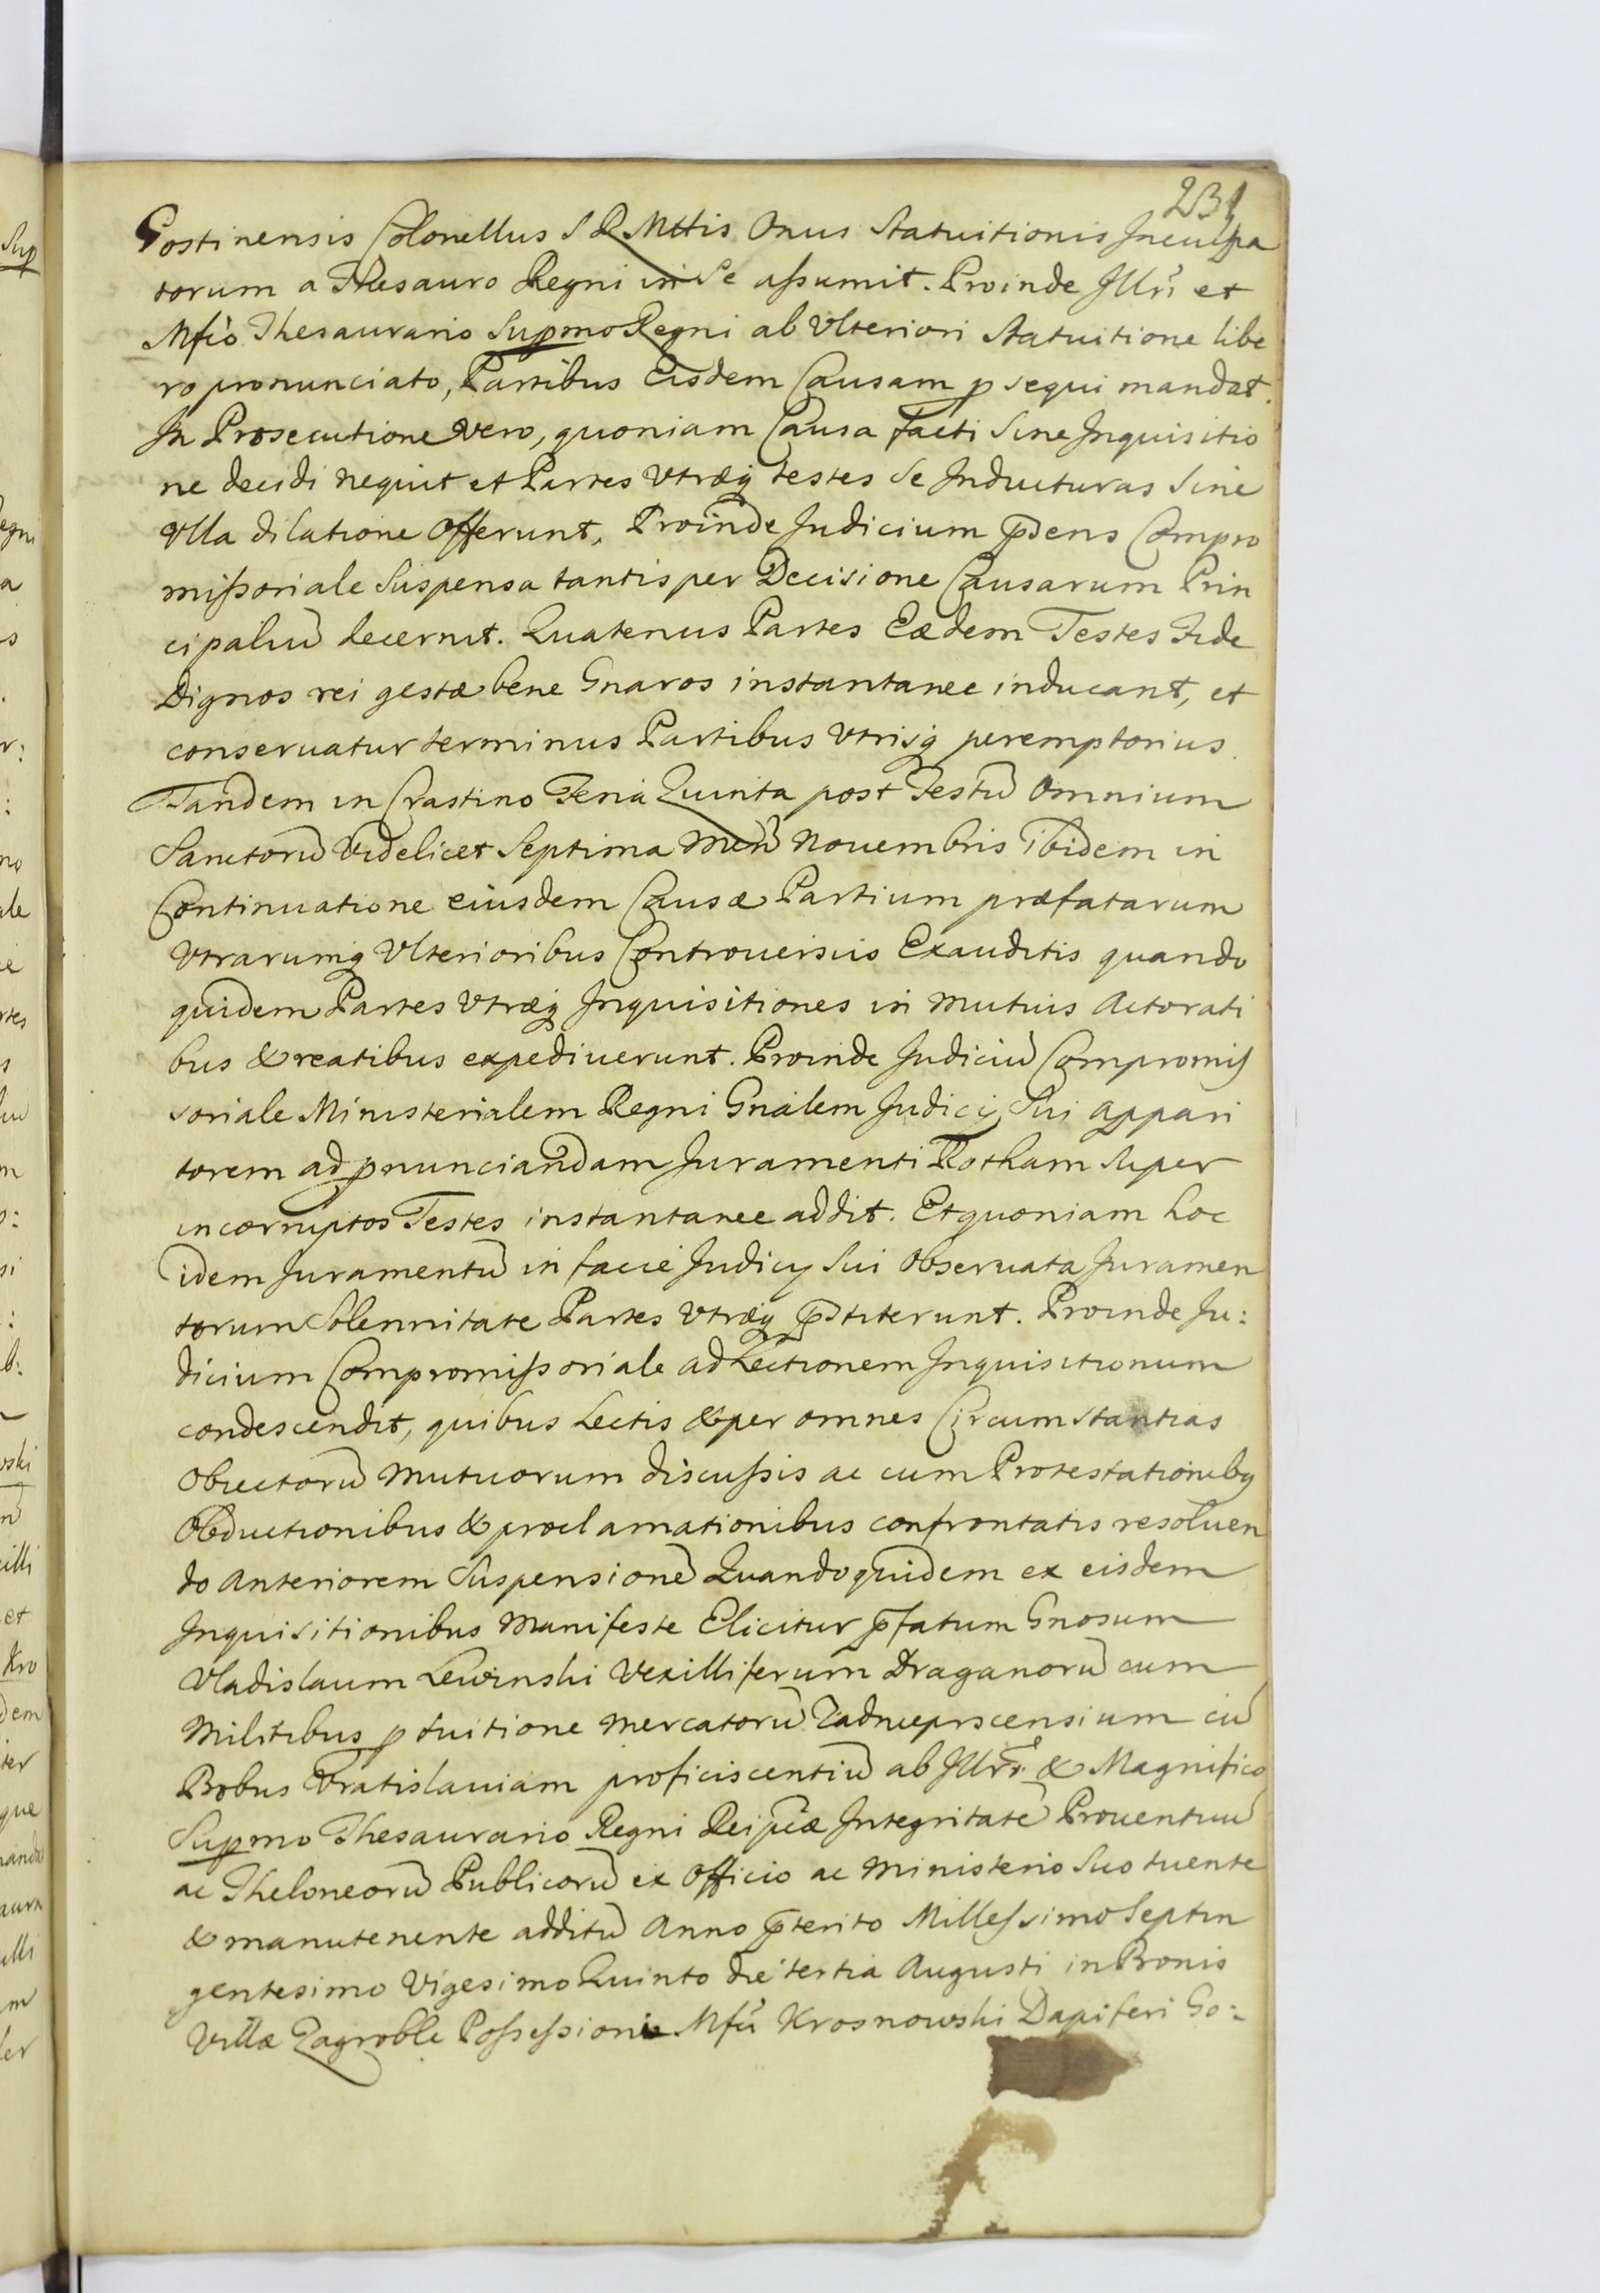 231
Gostinensis Colonellus S R Mttis Onus Statuitionis Inculpa
torum a Thesauro Regni in Se assumit. Proinde Illri et
Mfico Thesaurario Supmo Regni ab Ulteriori Statuitione libe
ro pronunciato, Partibus Eisdem Causam p sequi mandat.
In Prosecutione vero, quoniam Causa facti Sine Inquisitio
ne decidi nequit et Partes Utræq testes Se Inducturas Sine
Ulla dilatione Offerunt, Proinde Judicium pdens Compro
missoriale Suspensa tantisper Decisione Causarum Prin
cipaliũ decernit. Quatenus Partes Eædem Testes Fide
Dignos rei gestæ bene Gnaros instantanee inducant, et
conservatur terminus Partibus Utrisq peremptorius.
Tandem in Crastino Feria Quinta post Festũ Omnium
Sanctorũ Videlicet Septima Men Novembris ibidem in
Continuatione eiusdem Causæ Partium præfatarum
Utrarumq Ulterioribus Controversiis Exauditis quando
quidem Partes Utræq Inquisitiones in mutuis Actorati
bus & reatibus expediverunt. Proinde Judiciũ Compromis
soriale Ministerialem Regni Gnalem Judicij Sui appari
torem ad pnunciandam Juramenti Rotham Super
incorruptos Testes instantanee addit. Et quoniam hoc
idem Juramentũ in facie Judicij Sui Observata Juramen
torum Solennitate Partes Utræq pstiterunt. Proinde Ju:
dicium Compromissoriale ad Lectionem Inquisitionum
condescendit, quibus Lectis & per omnes Circumstantias
Obiectorũ mutuorum discussis ac cum Protestationibq
Obductionibus & proclamationibus confrontatis resolven
do Anteriorem Suspensionẽ Quandoquidem ex eisdem
Inquisitionibus manifeste Elicitur pfatum Gnosum
Vladislaum Lewinski Vexilliferum Draganorũ cum
Militibus p tuitione mercatorũ Zadnieprscensium cũ
Bobus Vratislaviam proficiscentiũ ab Illri & Magnifico
Supmo Thesaurario Regni Reipcæ Integritatẽ Proventuũ
ac Theloneorũ Publicorũ ex Officio ac ministerio Suo tuente
& manutenente additũ Anno pterito Millessimo Septin
gentesimo Vigesimo Quinto die tertia Augusti in Bonis
Villæ Zagroble Possessionis Mfci Krosnowski Dapiferi Go: